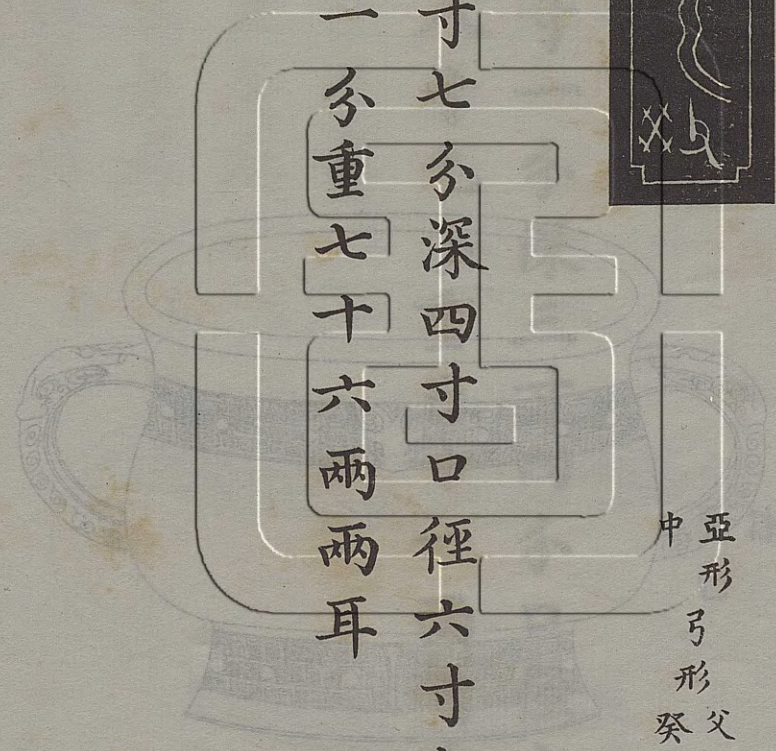 亞形
中
弓形
父
癸
寸七分深四寸口徑六寸
一分重七十六兩兩耳